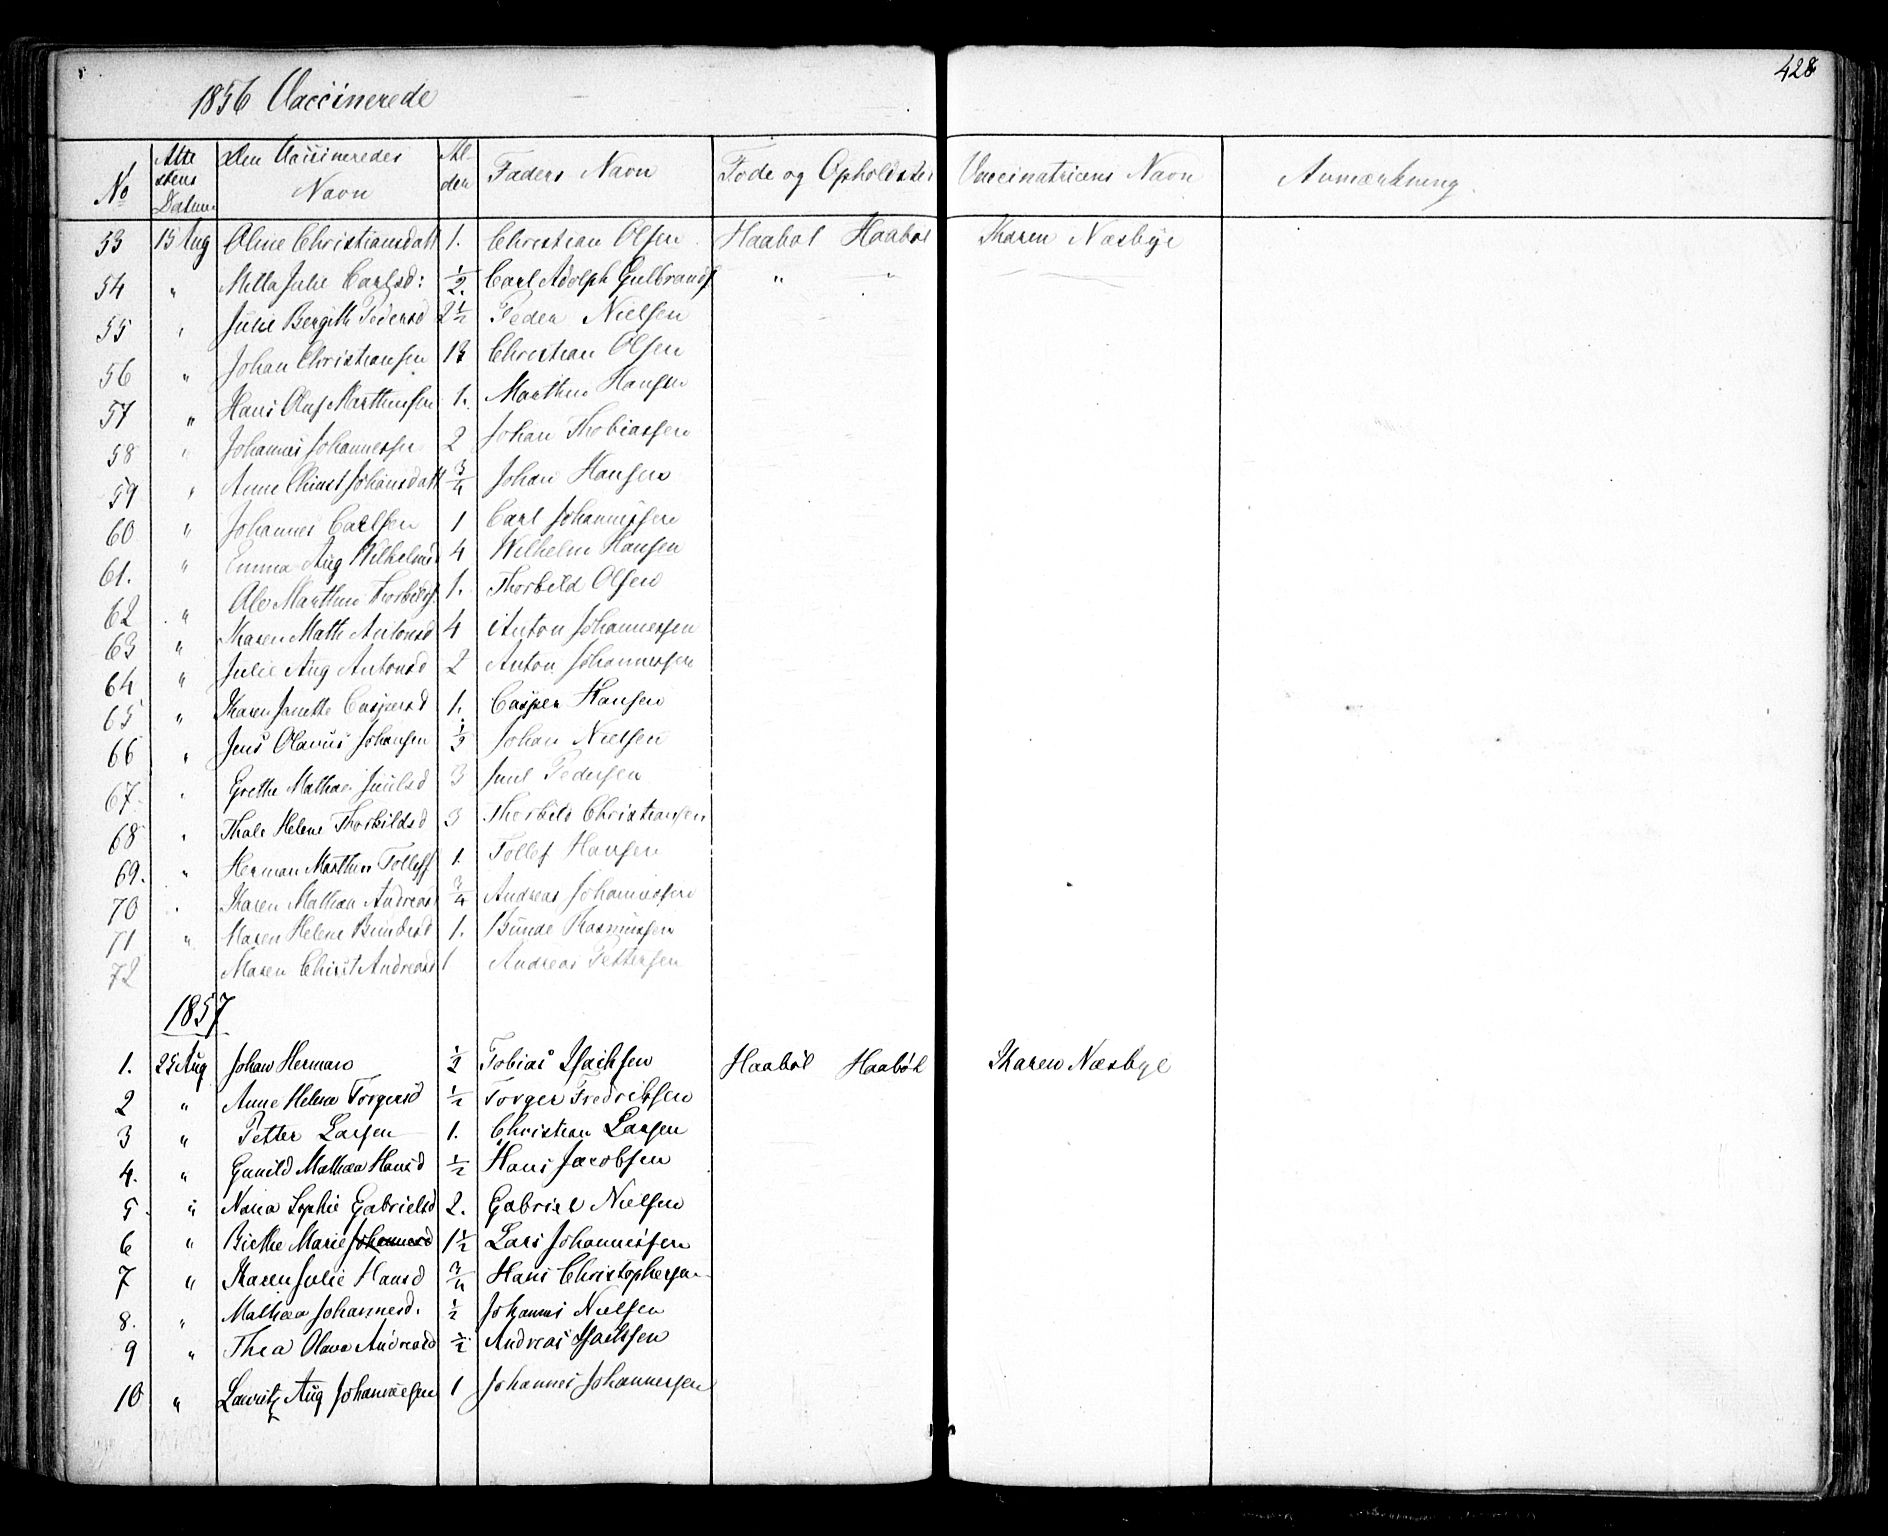 428
1856 Vaccinerede
No Attestens Datum Den Vaccineredes Navn Alder Faders Navn Føde og Opholdsted Vaccinatricens Navn Anmærkning.
53 15 Aug Oline Christiansdatt 1. Christian Olsen Haabøl Haabøl Karen Næsbye
54 " Milla Julie Carlsd: 1/2. Carl Adolph Gulbrands " "
55 " Julie Bergith Pedersd 2 1/2 Peder Nielsen
56 " Johan Christiansen 13 Christian Olsen
57 " Hans Oluf Marthinsen 1. Marthin Hansen
58 " Johannes Johannessen 2 Johan Thobiassen
59 " Anne Christ Johansdatt 3/4 Johan Hansen
60 " Johannes Carlsen 1 Carl Johannessen
61. " Emma Aug Wilhelmsd 4 Wilhelm Hansen
62 " Ole Marthin Thorkilds. 1. Thorkild Olsen
63 " Karen Math Antonsd 4 Anton Johannessen
64 " Julie Aug Antonsd 2 Anton Johannessen
65 " Karen Janette Caspersd 1. Casper Hansen
66 " Jens Olavus Johansen 1/2 Johan Nielsen
67. " Grethe Mathea Juulsd 3 Juul Pedersen
68 " Thale Helene Thorkildsd 3 Thorkild Christiansen
69. " Herman Marthin Tollefs 1. Tollef Hansen
70 " Karen Mathea Andreas 3/4 Andreas Johannessen
71 " Maren Helene Bundesd 1. Bunde Rasmussen
72 Maren Christ Andreasd 1 Andreas Pettersen
1857
1. 25 Aug Johan Herman 1/2 Tobias Isachsen Haabøl Haabøl Karen Næsbye
2 " Anne Helene Torgersd 1/2 Torger Fredriksen
3 " Petter Larsen 1. Christian Larsen
4. " Gunild Mathea Hansd 1/2 Hans Jacobsen
5. " Naria Sophie Gabrielsd 2. Gabriel Nielsen
6 " Birthe Marie Johannesd 1 1/2 Lars Johannessen
7 " Karen Julie Hansd 3/4 Hans Christophersen
8. " Mathea Johannesd. 1/2 Johannes Nielsen
9 " Thea Olava Andreasd 1/2 Andreas Isachsen
10 " Lauritz Aug Johannessen 1 Johannes Johannessen